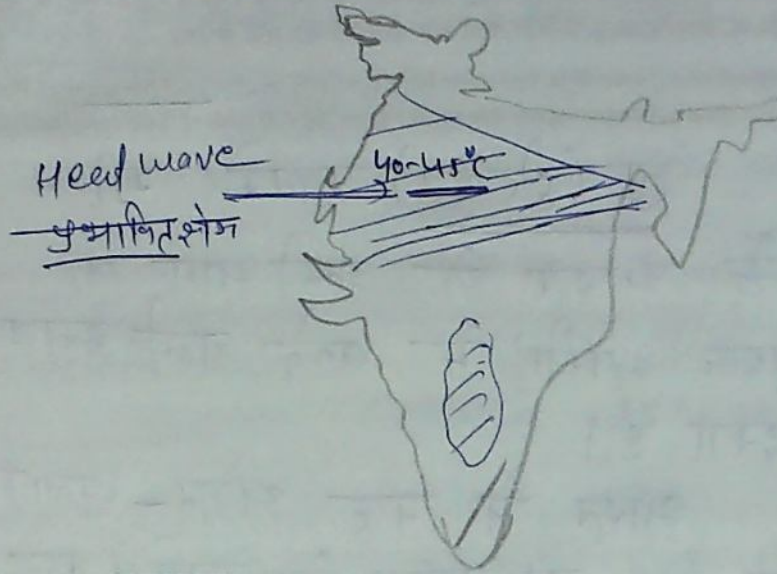 Heed wave
प्रभावित क्षेत्र
40-45°C